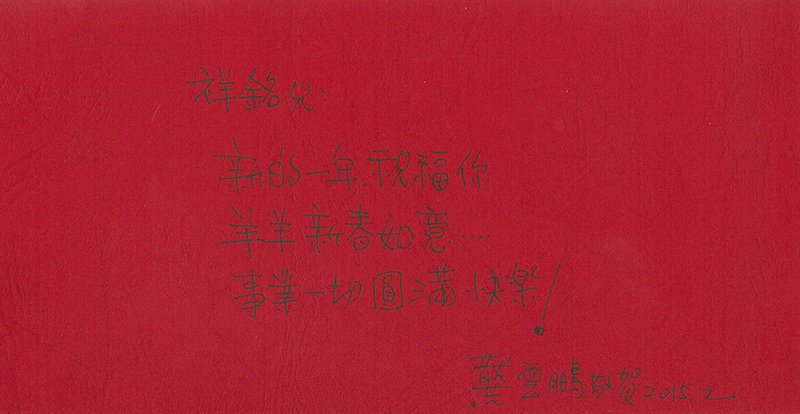 祥銘兄:
新的一年.祝福你
羊羊新春如意....
事業一切圓滿.快樂!
龔雲鵬敬賀2015.2